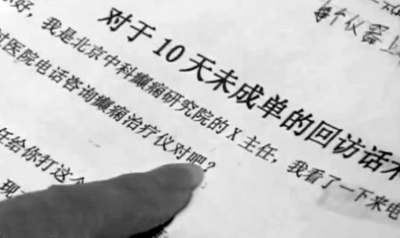 个仪器上
对于10天未成单的回访话术
好，我是北京中科癫痫研究院的X主任，我看了一下来电
医院电话咨询癫痫治疗仪对吧？
任给你打这个
现